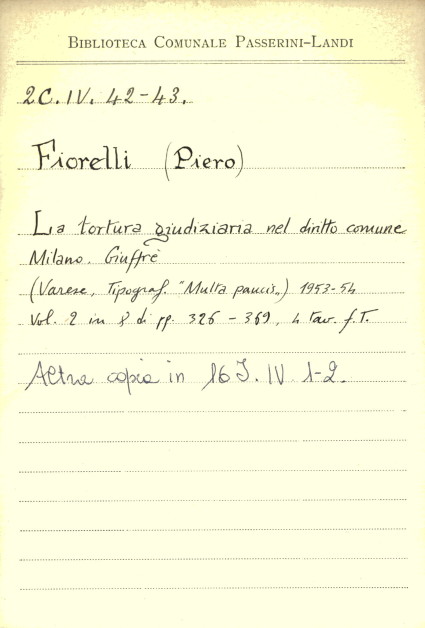 BIBLIOTECA COMUNALE PASSERINI-LANDI
2C. IV. 42-43.
Fiorelli (Piero)
La tortura giudiziaria nel diritto comune
Milano. Giuffrè
(Varese, Tipograf. "Multa paucis„) 1953-54
Vol. 2 in 8 di pp. 326 - 369, 4 tav. f.T.
Altra copia in 16 J. IV 1-2.